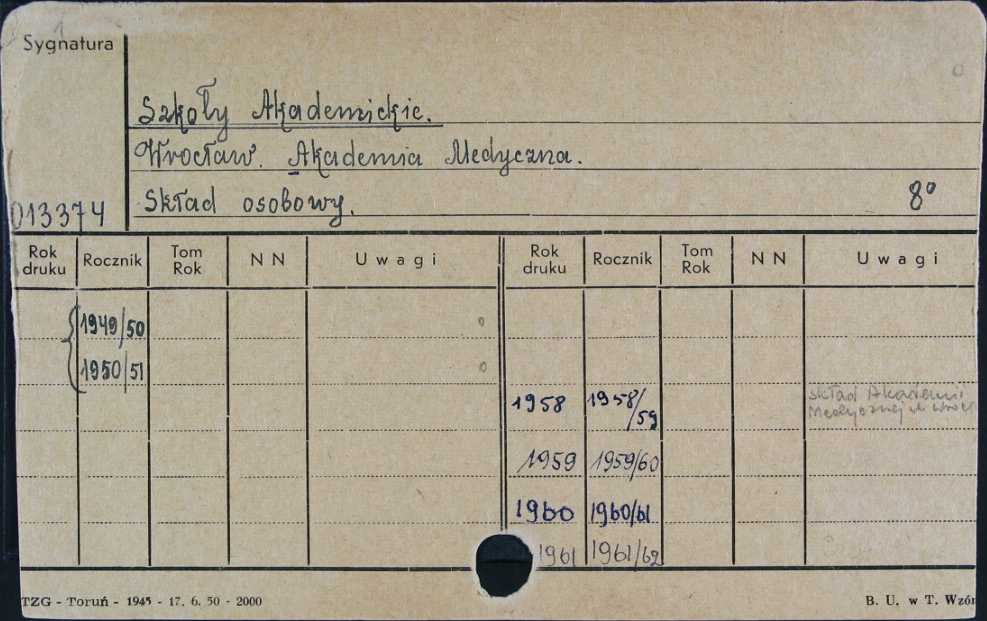 Sygnatura
Szkoły Akademickie.
Wrocław. Akademia Medyczna.
013374 Skład osobowy. 8°
Rok druku Rocznik Tom Rok N N Uwagi Rok druku Rocznik Tom Rok N N Uwagi
1949/50
1950/51
1958 1958/59 skład Akademii
Medycznej
1959 1959/60
1960 1960/61
1961 1961/62
TZG - Toruń - 1945 - 17. 6. 50 - 2000 B. U. w T. Wzór